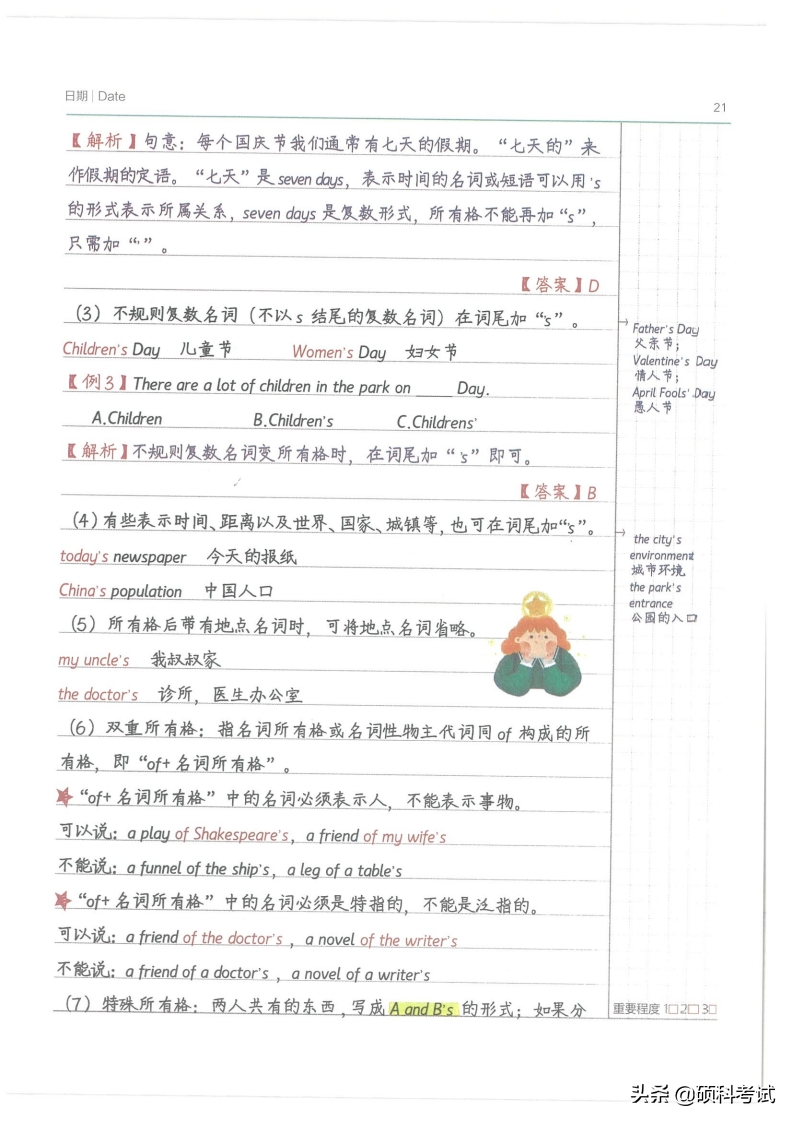 日期 | Date
21
【解析】句意：每个国庆节我们通常有七天的假期。“七天的”来
作假期的定语。“七天”是 seven days，表示时间的名词或短语可以用's
的形式表示所属关系，seven days 是复数形式，所有格不能再加“s”，
只需加“'”。
【答案】D
（3）不规则复数名词（不以 s 结尾的复数名词）在词尾加“'s”。
Children's Day 儿童节 Women's Day 妇女节
【例3】There are a lot of children in the park on ____ Day.
A.Children B.Children's C.Childrens'
【解析】不规则复数名词变所有格时，在词尾加“'s”即可。
【答案】B
（4）有些表示时间、距离以及世界、国家、城镇等，也可在词尾加“'s”。
today's newspaper 今天的报纸
China's population 中国人口
（5）所有格后带有地点名词时，可将地点名词省略。
my uncle's 我叔叔家
the doctor's 诊所，医生办公室
（6）双重所有格：指名词所有格或名词性物主代词同 of 构成的所
有格，即“of+ 名词所有格”。
“of+ 名词所有格”中的名词必须表示人，不能表示事物。
可以说：a play of Shakespeare's，a friend of my wife's
不能说：a funnel of the ship's，a leg of a table's
“of+ 名词所有格”中的名词必须是特指的，不能是泛指的。
可以说：a friend of the doctor's，a novel of the writer's
不能说：a friend of a doctor's，a novel of a writer's
（7）特殊所有格：两人共有的东西，写成 A and B's 的形式；如果分
Father's Day
父亲节；
Valentine's Day
情人节；
April Fools' Day
愚人节
the city's
environment
城市环境
the park's
entrance
公园的入口
重要程度 1□ 2□ 3□
头条 @硕科考试